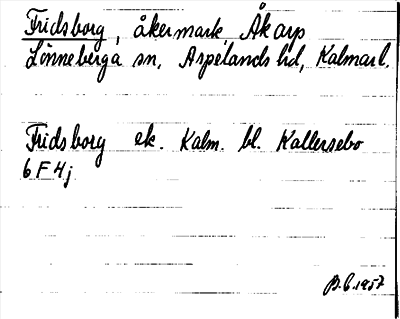 Fridsborg, åkermark, Åkarp
Lönneberga sn, Aspelands hd, Kalmar l.
Fridsborg ek. Kalm. bl. Kallersebo
6 F 4 j
B.C. 1957